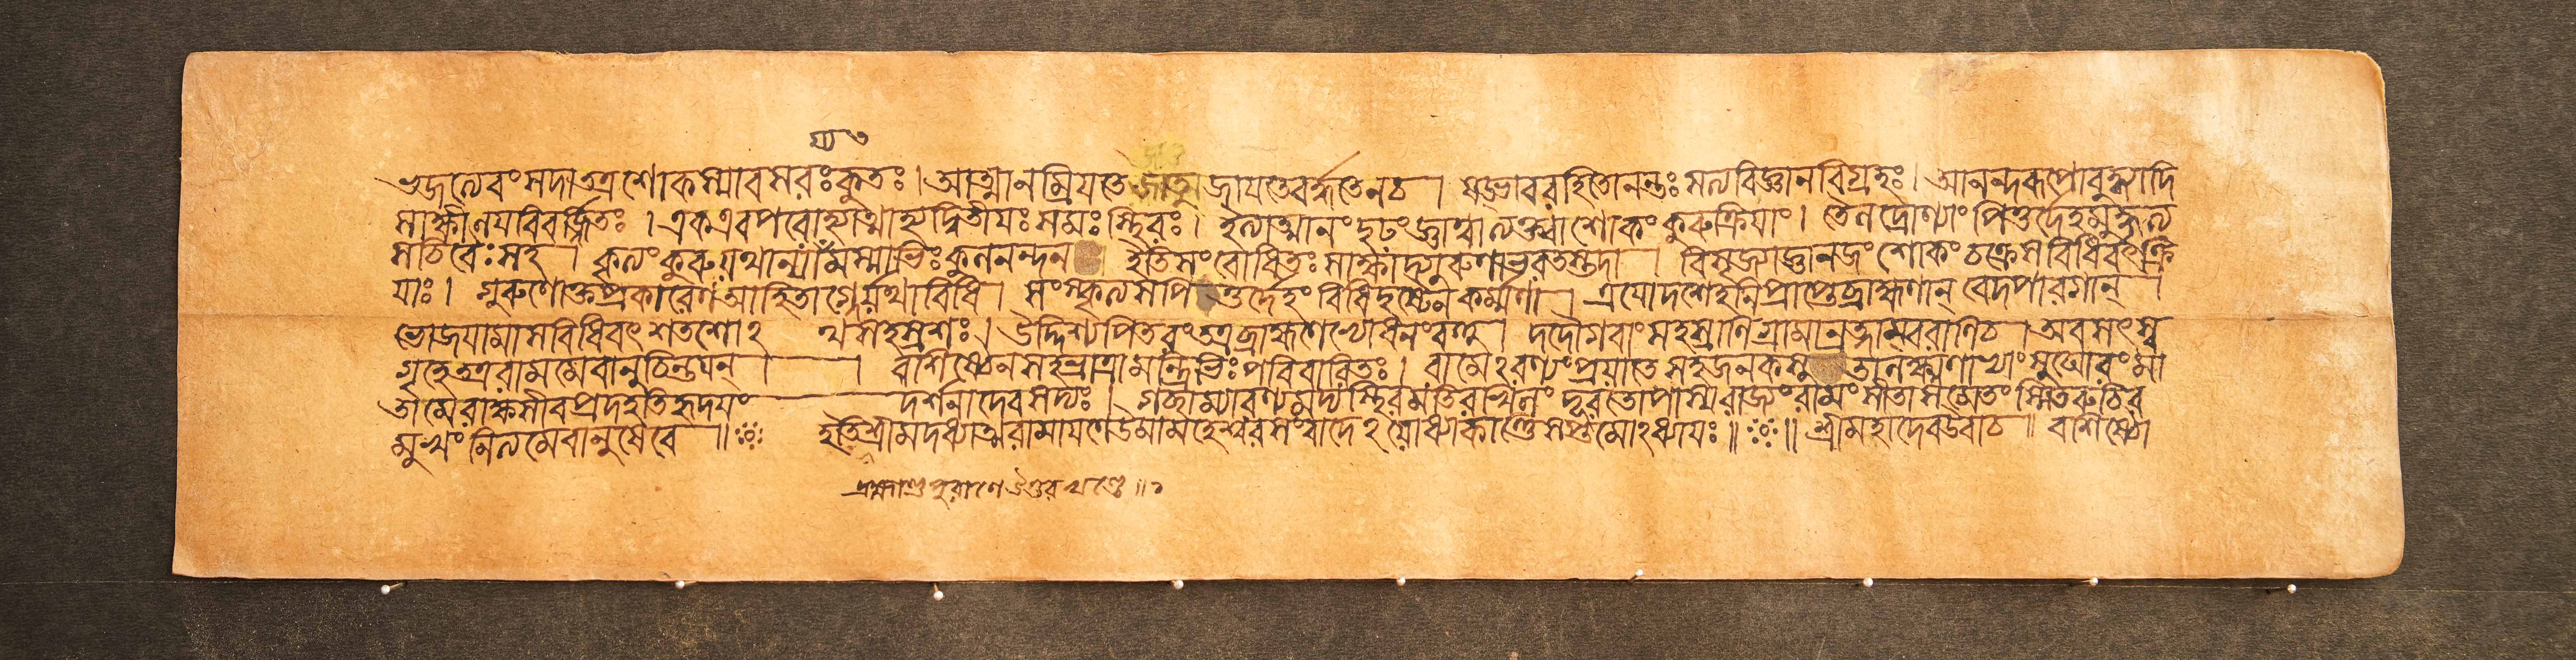 ভজত্যেবংসদাতত্রশোকস্যাবসরঃকুতঃ । আত্মানম্রিয়তেজাতুজায়তেবর্দ্ধতেনচ । ষড্ভাবরহিতোনন্তঃসত্যবিজ্ঞানবিগ্রহঃ । আনন্দরূপোবুদ্ধ্যাদি
সাক্ষীলয়বিবর্জ্জিতঃ । একএবপরোহ্যাত্মাহ্যদ্বিতীয়ঃসমঃস্থিরঃ । ইত্যাত্মানংদৃঢংজ্ঞাত্বাত্যক্ত্বাশোকংকুরুক্রিয়াং । তৈলদ্রোণ্যাংপিতুর্দেহমুদ্ধৃত্য
সচিবৈঃসহ । কৃত্যংকুরুযথান্যায়মস্মাভিঃকুলনন্দন । ইতিসংবোধিতঃসাক্ষাদ্গুরুণাভরতস্তদা । বিসৃজ্যাজ্ঞানজংশোকংচক্রেসবিধিবৎক্রি
য়াঃ । গুরুণোক্তপ্রকারেণআহিতাগ্নের্যথাবিধি । সংস্কৃত্যসপিতুর্দেহংবিধিদৃষ্টেনকর্ম্মণা । এযোদশেহনিপ্রাপ্তেব্রাহ্মণান্ বেদপারগান্ ।
ভোজয়ামাসবিধিবৎশতশোঽথসহস্রশঃ । উদ্দিশ্যপিতরংতত্রব্রাহ্মণেভ্যোধনংবহু । দদৌগবাংসহস্রাণিগ্রামান্রত্নাম্বরাণিচ । অবসৎস্ব
গৃহেতত্ররামমেবানুচিন্তয়ন্ । বশিষ্ঠেনসহভ্রাত্রামন্ত্রিভিঃপরিবারিতঃ । রামেঽরণ্যংপ্রয়াতেসহজনকসুতালক্ষ্মণাভ্যাংসুঘোরংমা
তামেরাক্ষসীবপ্রদহতিহৃদয়ংদর্শনাদেবসদ্যঃ । গচ্ছাম্যারণ্যমদ্যস্থিরমতিরখিলংদূরতোপাস্যরাজ্যংরামংসীতাসমেতংস্মিতরুচির
মুখংনিত্যমেবানুসেবে ॥ ইতিশ্রীমদধ্যাত্মরামায়ণেউমামহেশ্বরসংবাদেঽযোধ্যাকাণ্ডেসপ্তমোঽধ্যায়ঃ ॥ ॥ শ্রীমহাদেবউবাচ ॥ বশিষ্ঠো
ব্রহ্মাণ্ডপুরাণেউত্তরখণ্ডে ॥